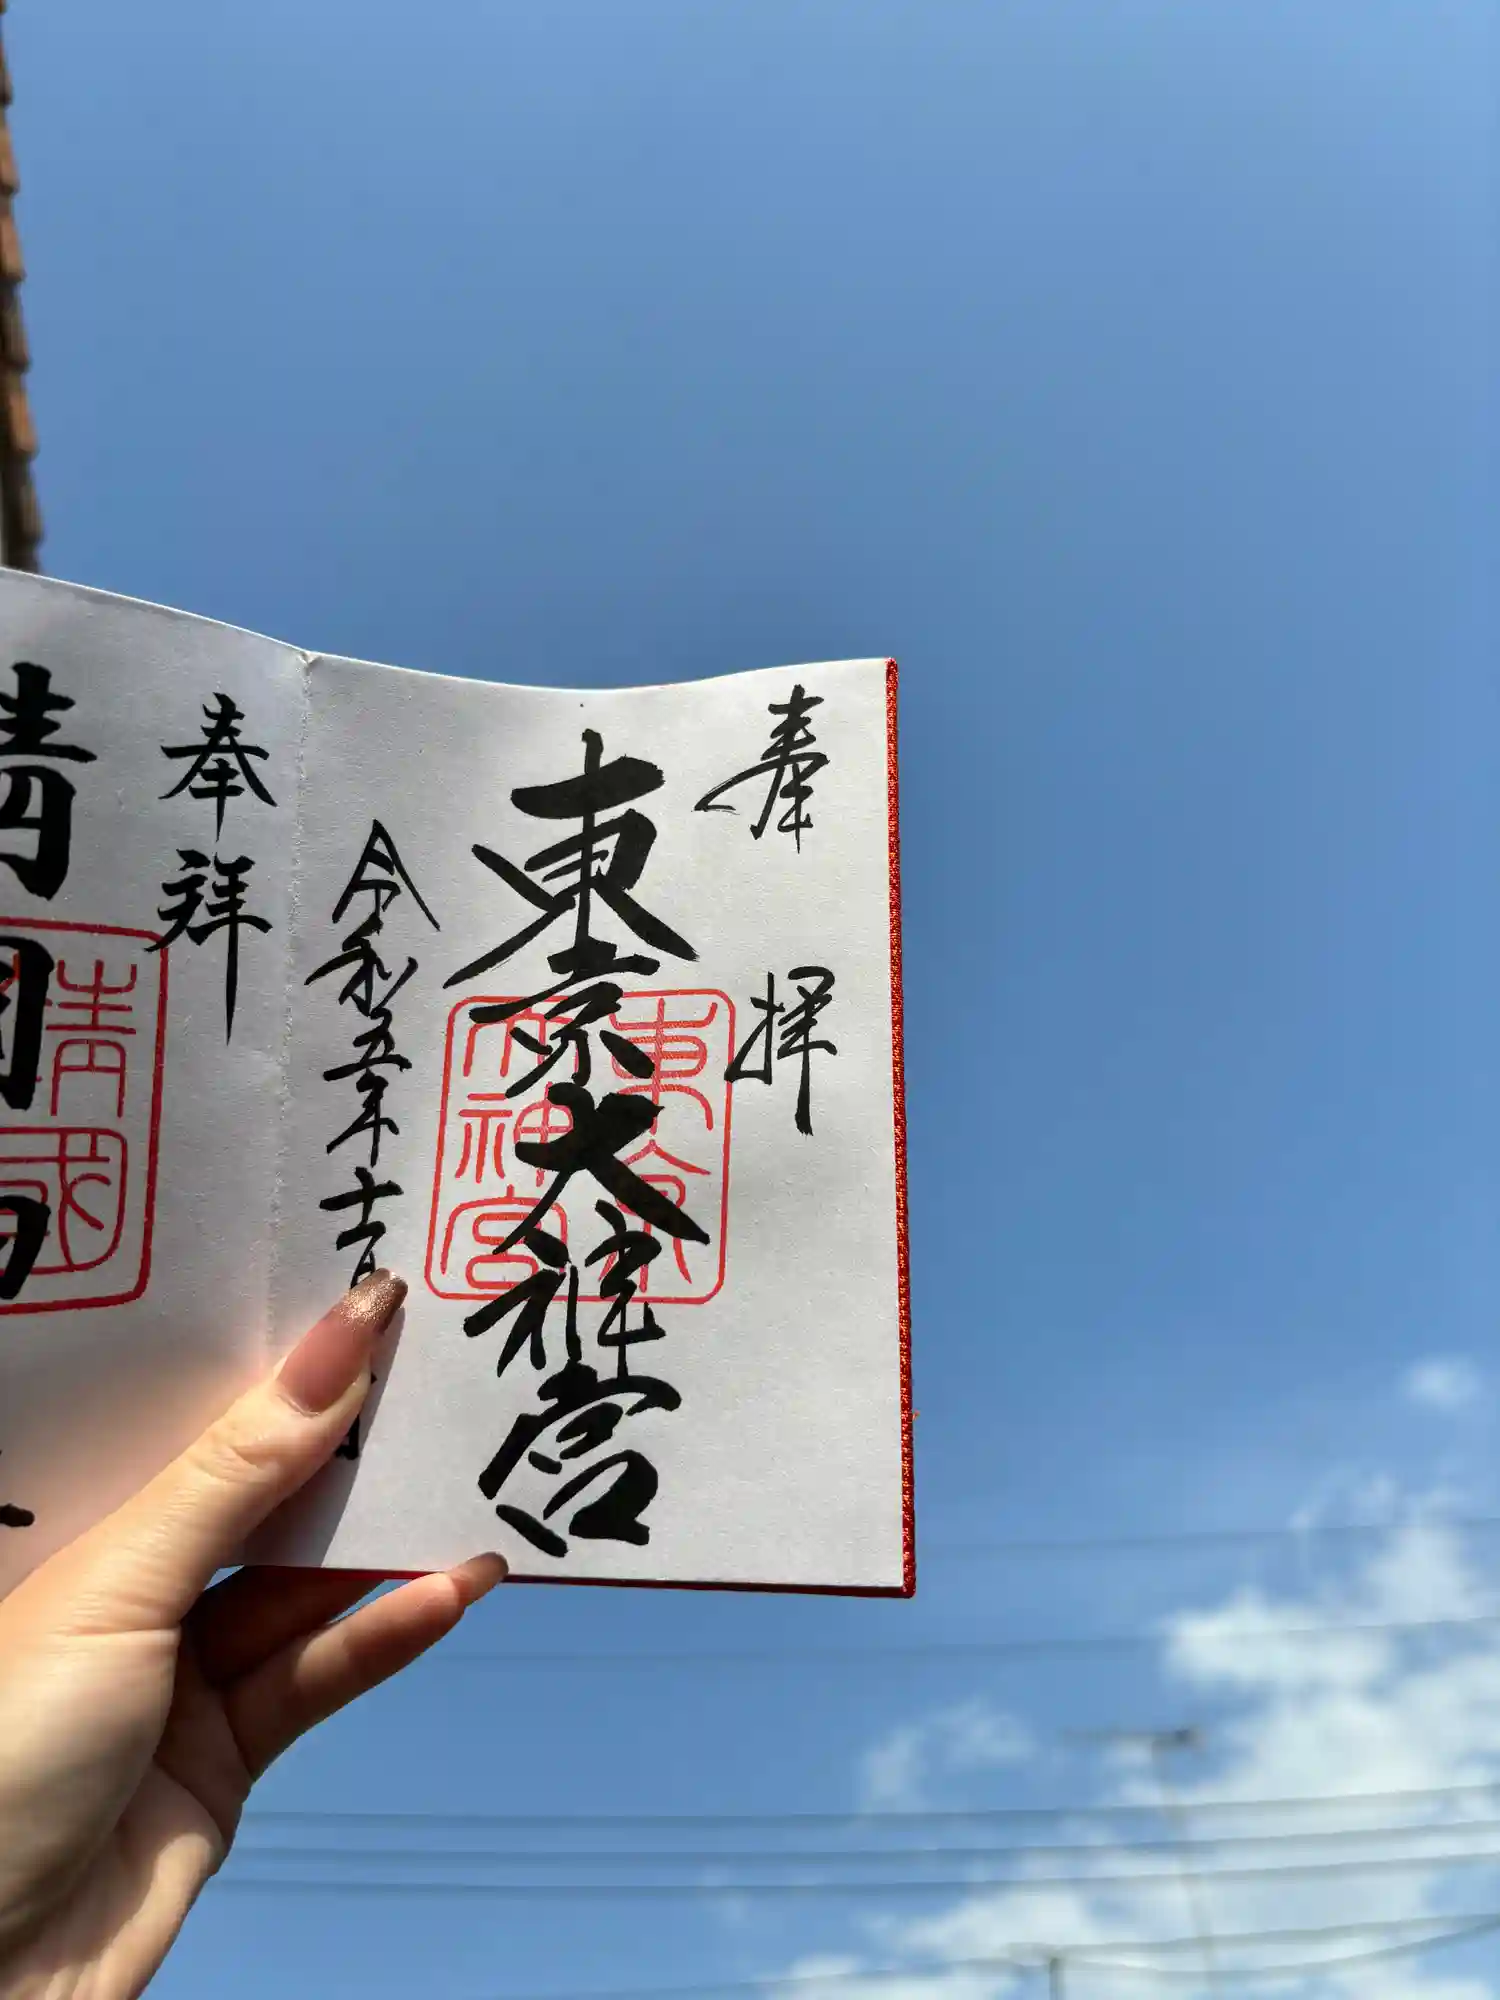 奉拝
東京大神宮
東京大神宮
令和五年十一月
奉拝
靖國
靖國